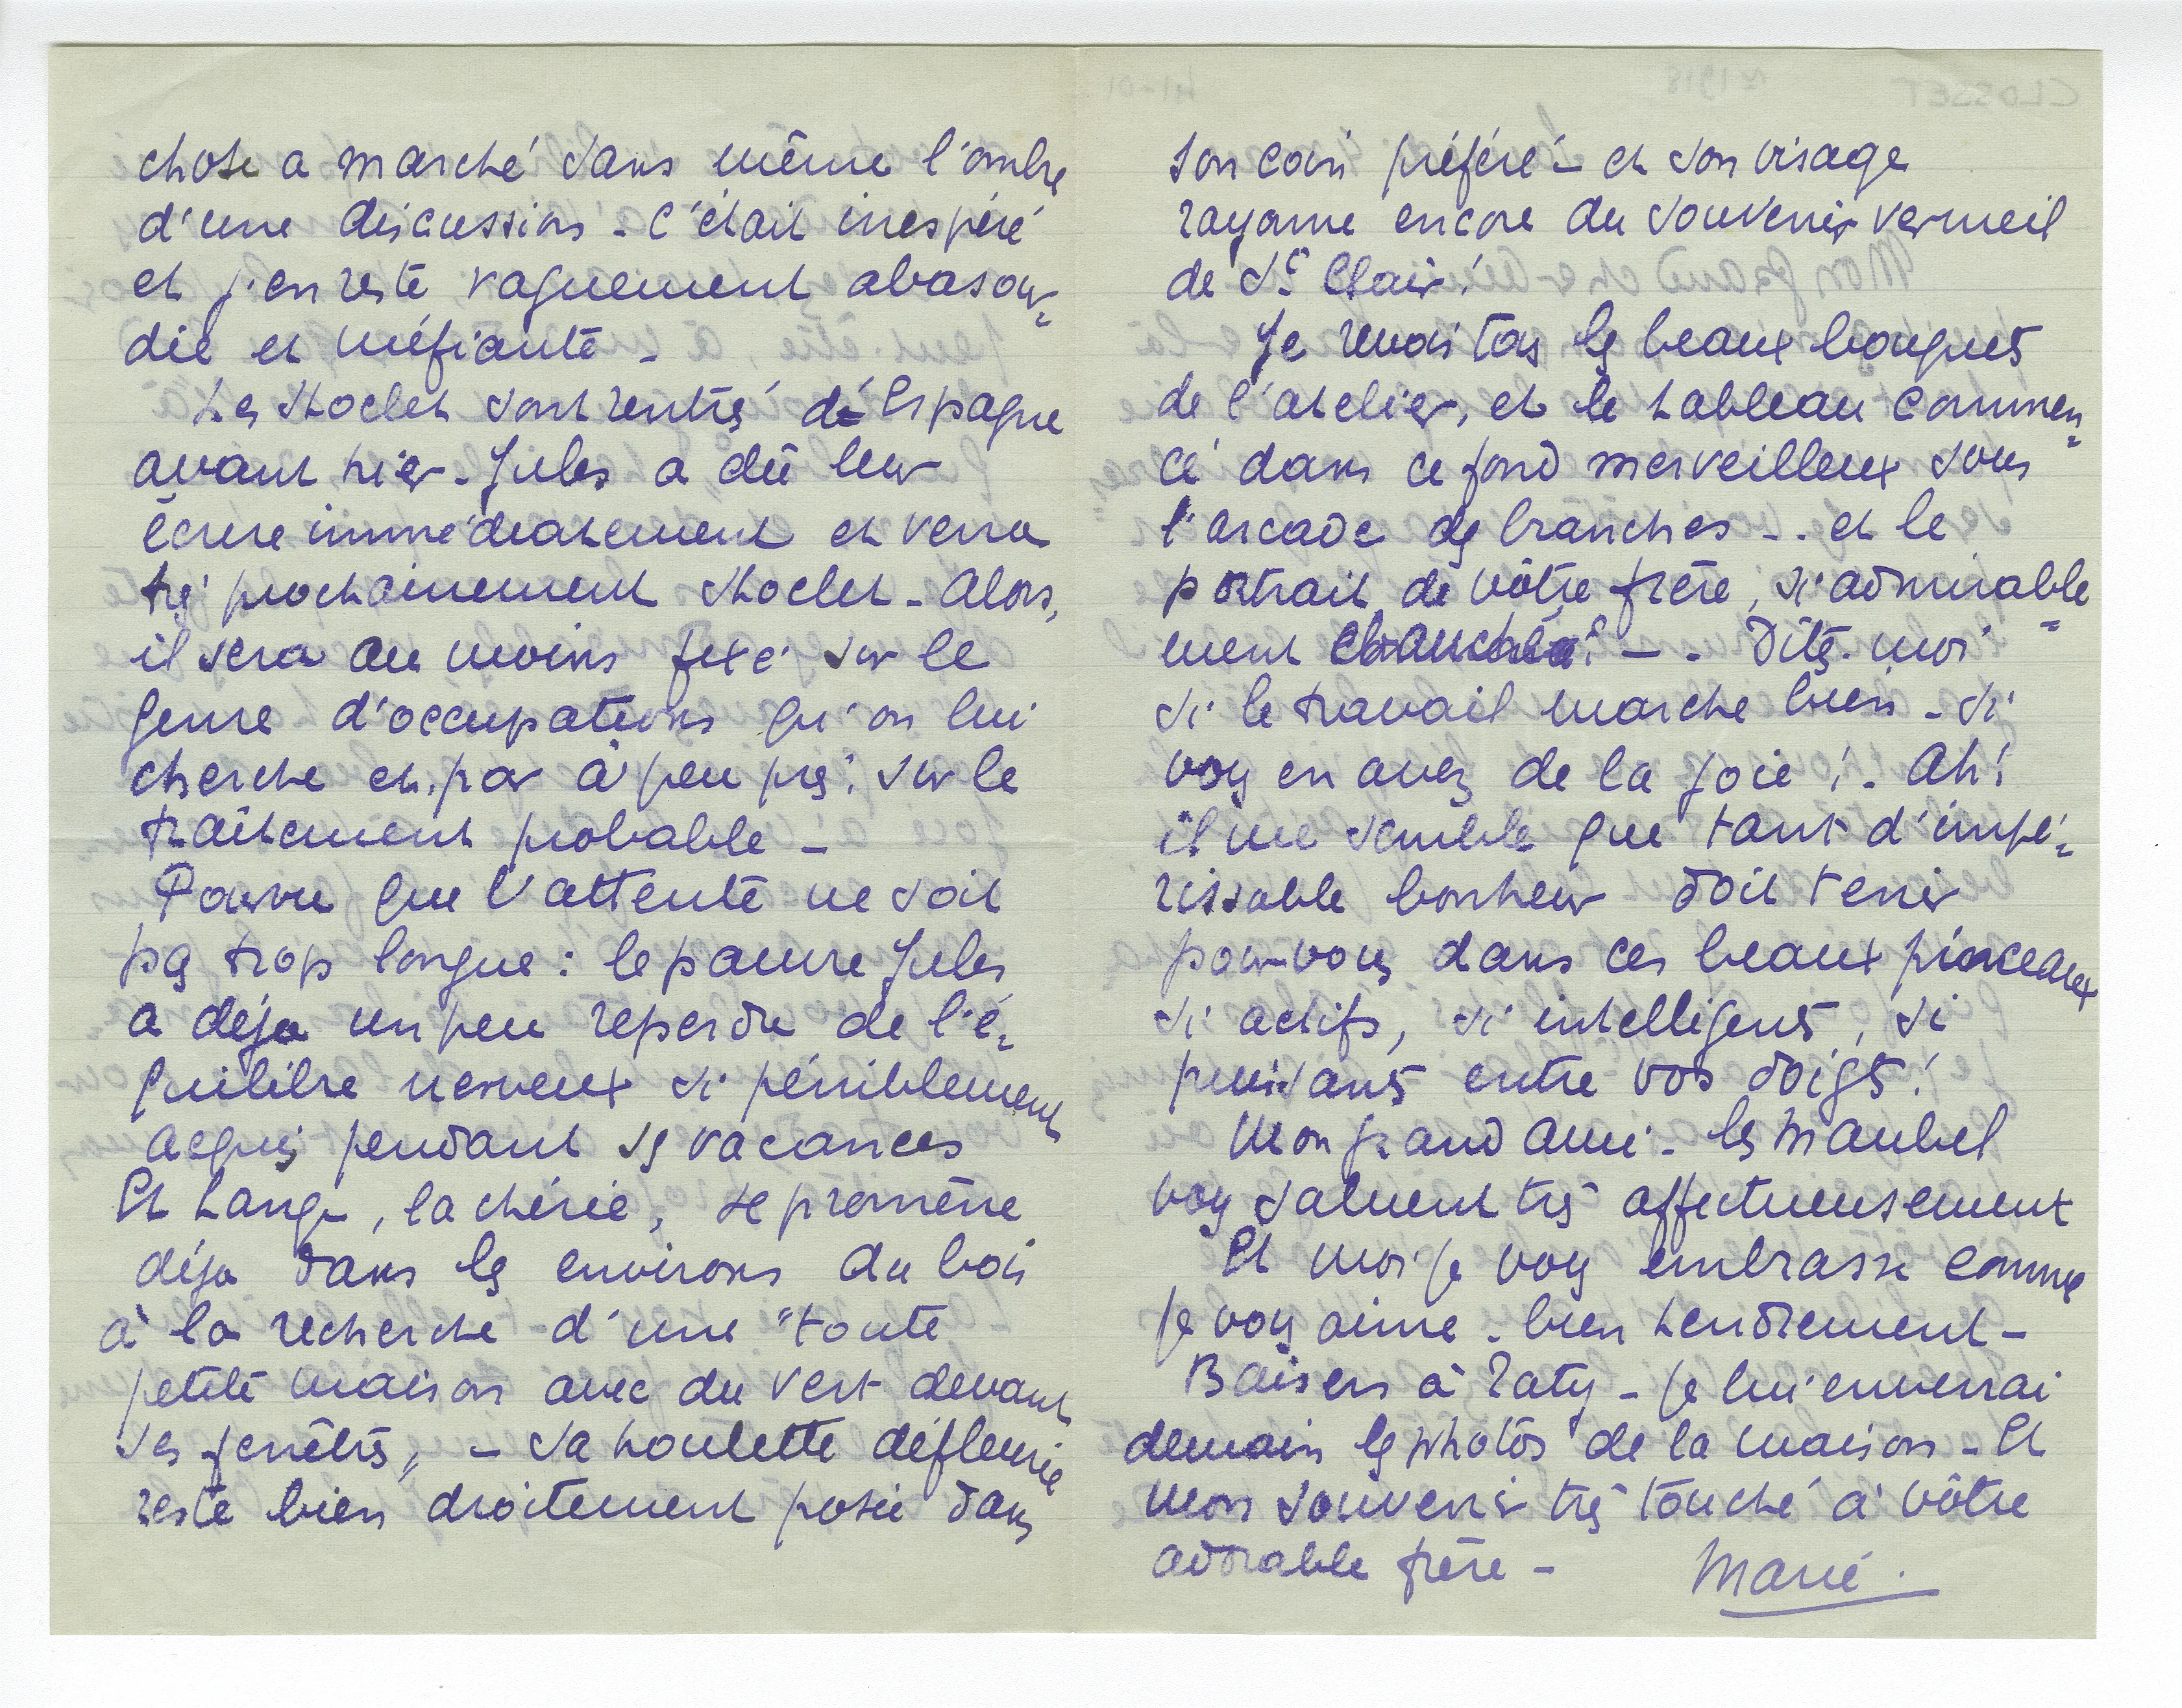 chose a marché sans même l'ombre
d'une discussion - C'était inespéré
et j'en reste vaguement abasour=
die et méfiante -
Les Stoclet sont rentrés d'Espagne
avant hier - Jules a dû leur
écrire immédiatement et verra
très prochainement Stoclet - Alors,
il sera au moins fixé sur le
genre d'occupations qu'on lui
cherche et, par à peu près, sur le
traitement probable -
Pourvu que l'attente ne soit
pas trop longue : le pauvre Jules
a déjà un peu reperdu de l'é=
quilibre nerveux si péniblement
acquis pendant ses vacances
Et Lange, la chérie, se promène
déjà dans les environs du bois
à la recherche d'une "toute
petite maison avec du vert devant
ses fenêtres" - sa houlette défleurie
reste bien droitement posée dans
son coin préféré - et son visage
rayonne encore du souvenir vermeil
de St Clair !
Je revois tous les beaux bouquets
de l'atelier, et le tableau commen=
cé dans ce fond merveilleux sous
l'arcade des branches - . et le
portrait de vôtre frère, si admirable=
ment ébauché ! - . Dites-moi
si le travail marche bien - si
vous en avez de la joie ! - Ah !
il me semble que tant d'impé=
rissable bonheur doit tenir
pour vous dans ces beaux pinceaux
si actifs, si intelligents, si
puissants entre vos doigts !
Mon grand ami - les Maubel
vous saluent très affectueusement
Et moi je vous embrasse comme
je vous aime - bien tendrement -
Baisers à Zaty - je lui enverrai
demain les photos de la maison - Et
mon souvenir très touché à vôtre
adorable frère - Marie.
CLOSSET
± 1918
41-01